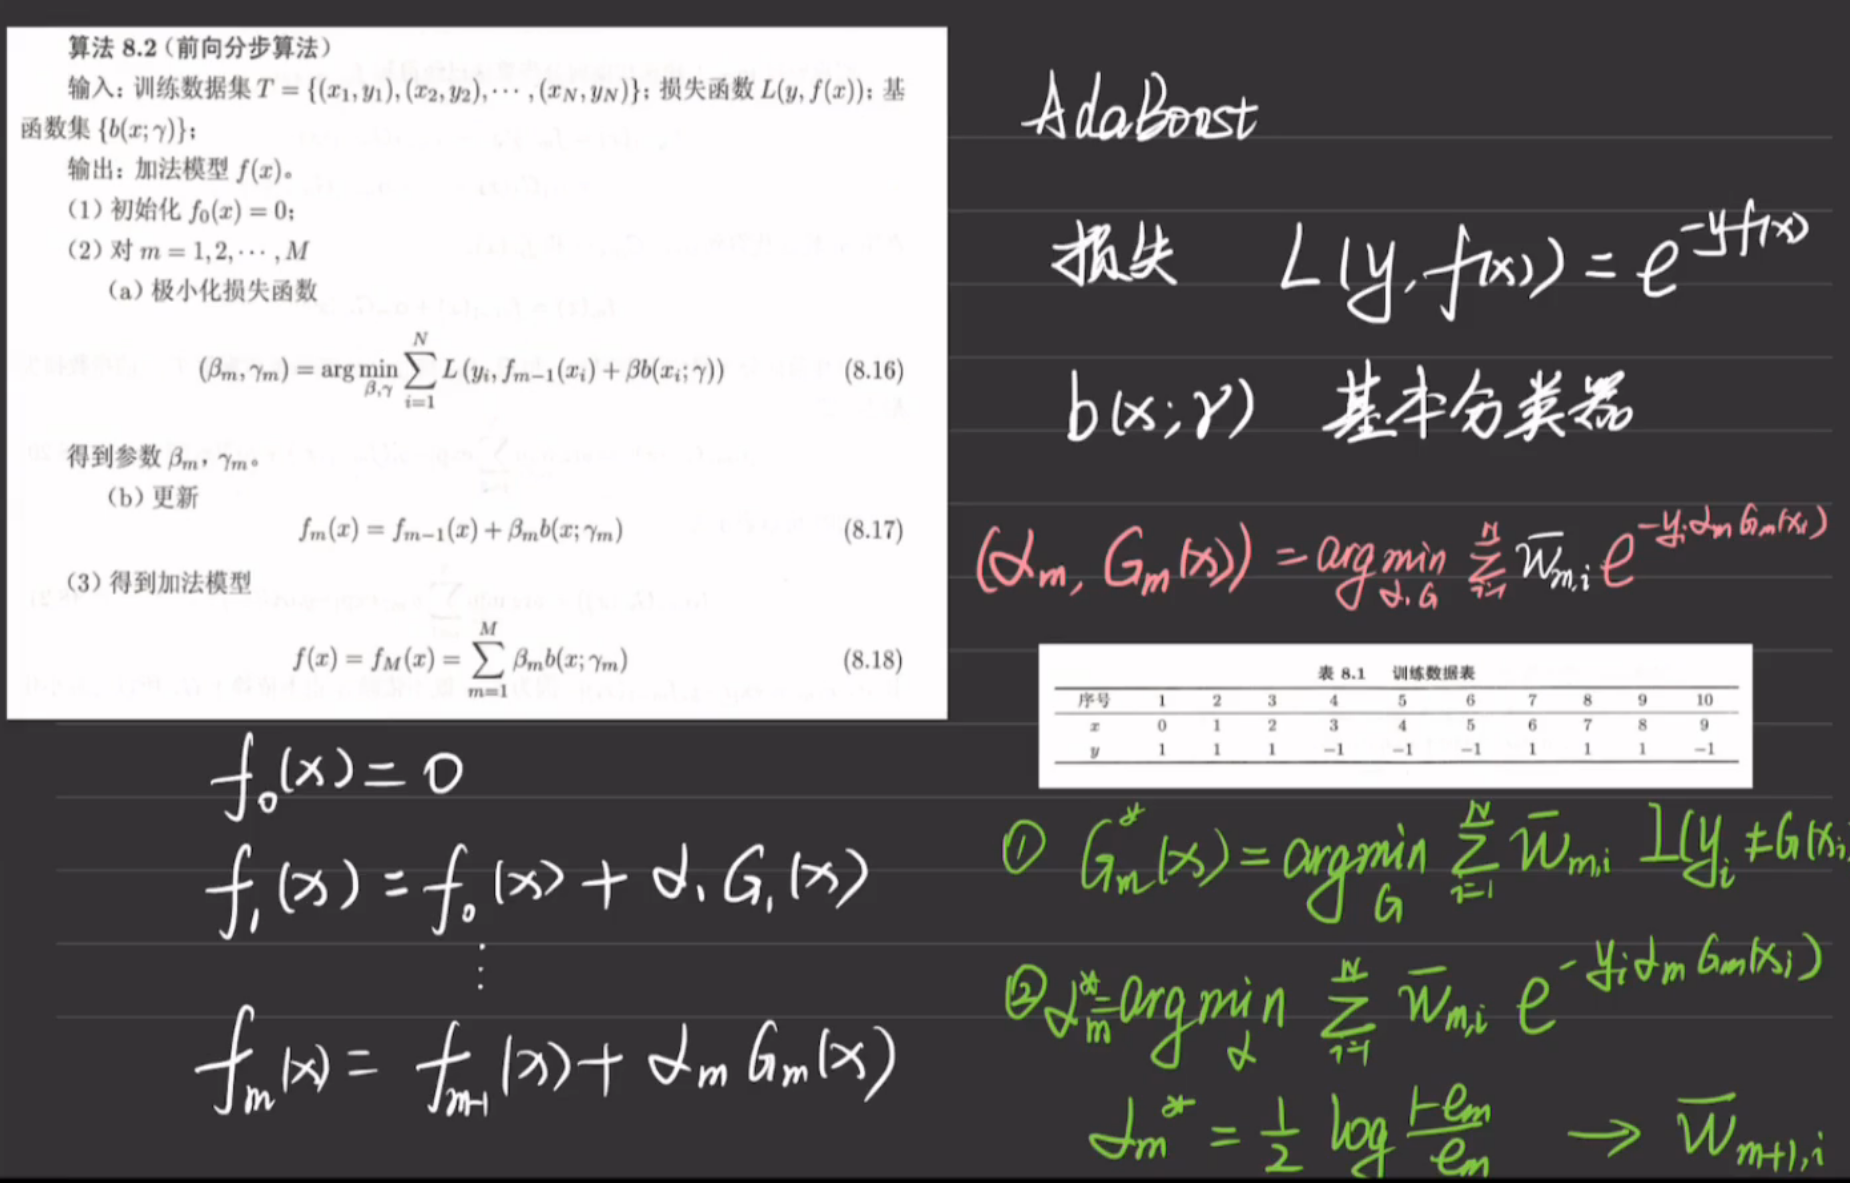 算法 8.2（前向分步算法）
输入：训练数据集 T = {(x₁, y₁), (x₂, y₂), ⋯ , (x_N, y_N)}；损失函数 L(y, f(x))；基
函数集 {b(x; γ)}；
输出：加法模型 f(x)。
（1）初始化 f₀(x) = 0；
（2）对 m = 1, 2, ⋯ , M
（a）极小化损失函数
(β_m, γ_m) = arg min_{β,γ} ∑_{i=1}^{N} L (y_i, f_{m−1}(x_i) + βb(x_i; γ)) (8.16)
得到参数 β_m，γ_m。
（b）更新
f_m(x) = f_{m−1}(x) + β_m b(x; γ_m) (8.17)
（3）得到加法模型
f(x) = f_M(x) = ∑_{m=1}^{M} β_m b(x; γ_m) (8.18)
f₀(x) = 0
f₁(x) = f₀(x) + α₁ G₁(x)
⋮
f_m(x) = f_{m-1}(x) + α_m G_m(x)
AdaBoost
损失 L(y, f(x)) = e^{-yf(x)}
b(x; γ) 基本分类器
(α_m, G_m(x)) = arg min_{α,G} ∑_{i=1}^{N} w̄_{m,i} e^{-y_i α_m G_m(x_i)}
表 8.1 训练数据表
序号 1 2 3 4 5 6 7 8 9 10
x 0 1 2 3 4 5 6 7 8 9
y 1 1 1 −1 −1 −1 1 1 1 −1
① G*_m(x) = arg min_G ∑_{i=1}^{N} w̄_{m,i} I(y_i ≠ G(x_i
② α*_m = arg min_α ∑_{i=1}^{N} w̄_{m,i} e^{-y_i α_m G_m(x_i)}
α_m* = 1/2 log (1-e_m)/e_m → w̄_{m+1,i}